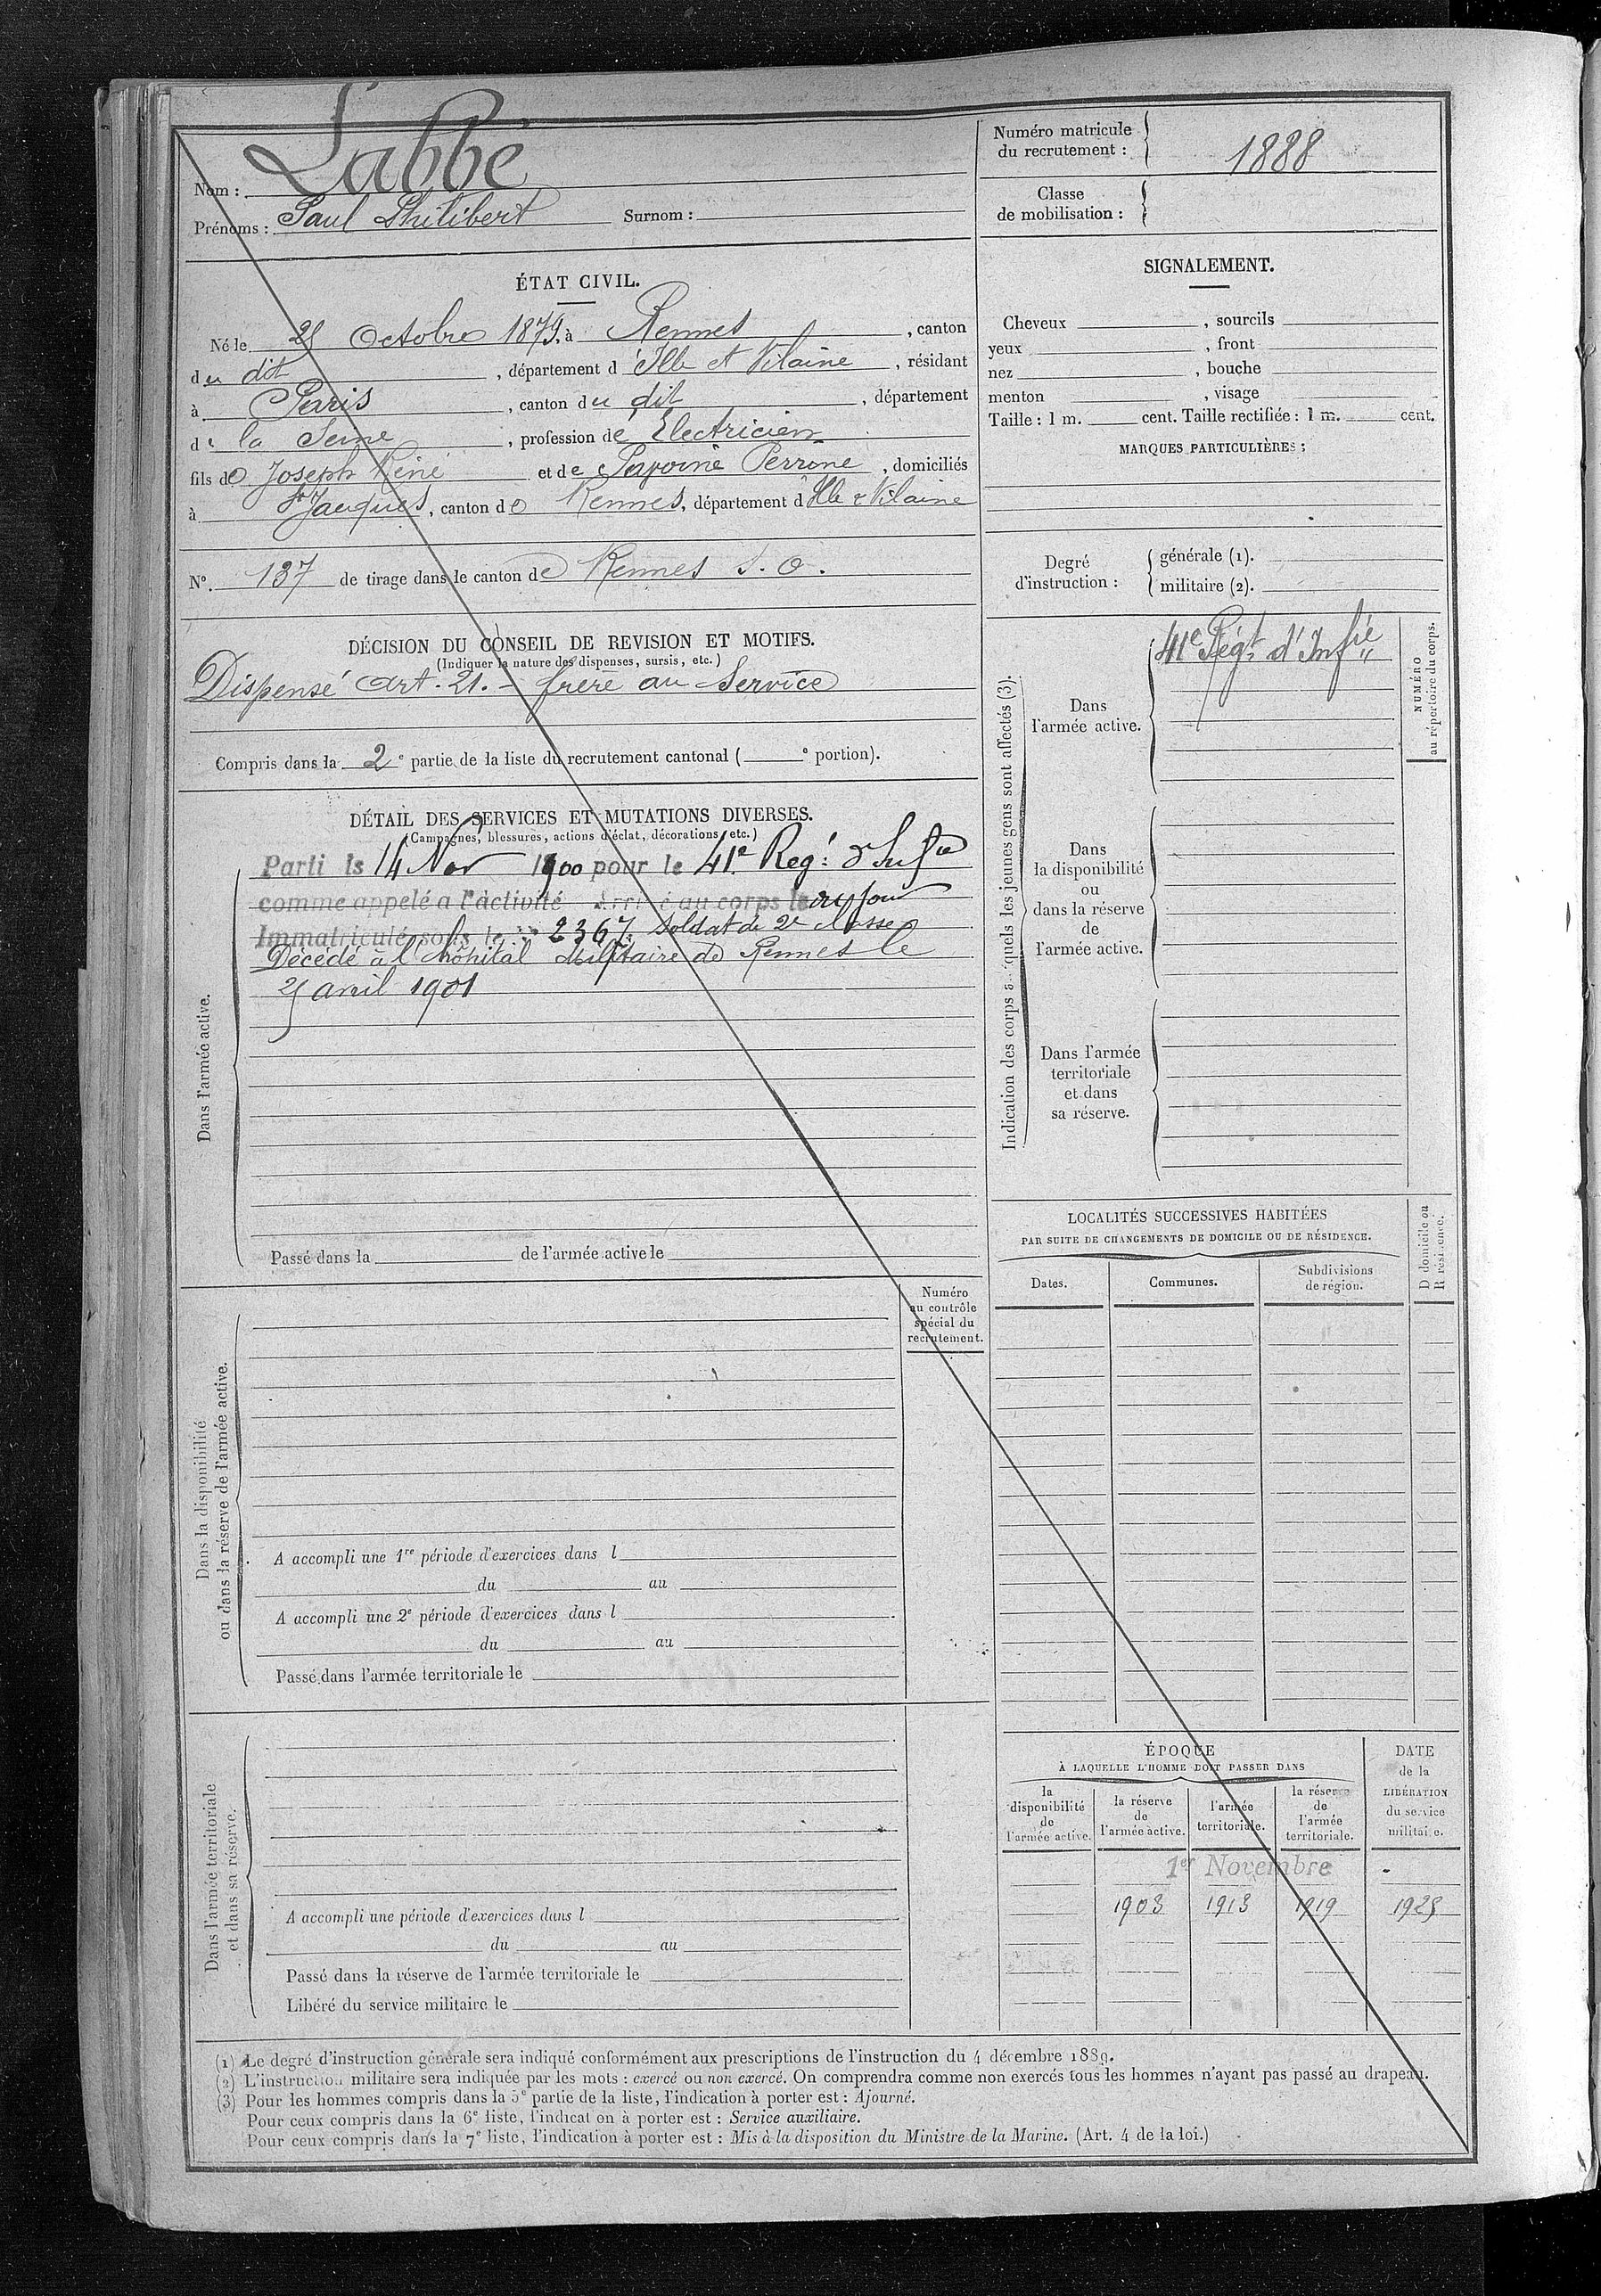 Labbé
Nom :
Prénoms : Paul Philibert Surnom :
Numéro matricule du recrutement : 1888
Classe de mobilisation :
ÉTAT CIVIL.
Né le 25 Octobre 1879, à Rennes, canton
du dit, département d'Ille et Vilaine, résidant
à Paris, canton du dit, département
de la Seine, profession de Électricien
fils de Joseph René et de Perrine, domiciliés
à St Jacques, canton de Rennes, département d'Ille & Vilaine
N°. 137 de tirage dans le canton de Rennes S. O.
DÉCISION DU CONSEIL DE REVISION ET MOTIFS.
(Indiquer la nature des dispenses, sursis, etc.)
Dispensé art. 21. - frère au Service
Compris dans la 2e partie de la liste du recrutement cantonal ( e portion).
DÉTAIL DES SERVICES ET MUTATIONS DIVERSES.
(Campagnes, blessures, actions d'éclat, décorations, etc.)
Dans l'armée active.
Parti le 14 Nov 1900 pour le 41e Reg.t d'Infie
comme appelé à l'activité Arrivé au corps le dit jour
Immatriculé sous le n° 2367. Soldat de 2e classe
Décédé à l'hôpital Militaire de Rennes le
25 avril 1901
Passé dans la de l'armée active le
Numéro
au contrôle
spécial du
recrutement.
Dans la disponibilité
ou dans la réserve de l'armée active.
A accompli une 1re période d'exercices dans l
du au
A accompli une 2e période d'exercices dans l
du au
Passé dans l'armée territoriale le
Dans l'armée territoriale
et dans sa réserve.
A accompli une période d'exercices dans l
du au
Passé dans la réserve de l'armée territoriale le
Libéré du service militaire le
SIGNALEMENT.
Cheveux , sourcils
yeux , front
nez , bouche
menton , visage
Taille : 1 m. cent. Taille rectifiée : 1 m. cent.
MARQUES PARTICULIÈRES :
Degré d'instruction :
générale (1).
militaire (2).
Indication des corps auxquels les jeunes gens sont affectés (3).
Dans
l'armée active.
41e Régt d'Infie
NUMÉRO
au répertoire du corps.
Dans
la disponibilité
ou
dans la réserve
de
l'armée active.
Dans l'armée
territoriale
et dans
sa réserve.
LOCALITÉS SUCCESSIVES HABITÉES
PAR SUITE DE CHANGEMENTS DE DOMICILE OU DE RÉSIDENCE.
Dates. Communes. Subdivisions de région.
D domicile ou
R résidence.
ÉPOQUE
À LAQUELLE L'HOMME DOIT PASSER DANS
la disponibilité de l'armée active.
la réserve de l'armée active.
l'armée territoriale.
la réserve de l'armée territoriale.
DATE de la LIBÉRATION du service militaire.
1er Novembre
1903 1913 1919 1925
(1) Le degré d'instruction générale sera indiqué conformément aux prescriptions de l'instruction du 4 décembre 1889.
(2) L'instruction militaire sera indiquée par les mots : exercé ou non exercé. On comprendra comme non exercés tous les hommes n'ayant pas passé au drapeau.
(3) Pour les hommes compris dans la 5e partie de la liste, l'indication à porter est : Ajourné.
Pour ceux compris dans la 6e liste, l'indication à porter est : Service auxiliaire.
Pour ceux compris dans la 7e liste, l'indication à porter est : Mis à la disposition du Ministre de la Marine. (Art. 4 de la loi.)